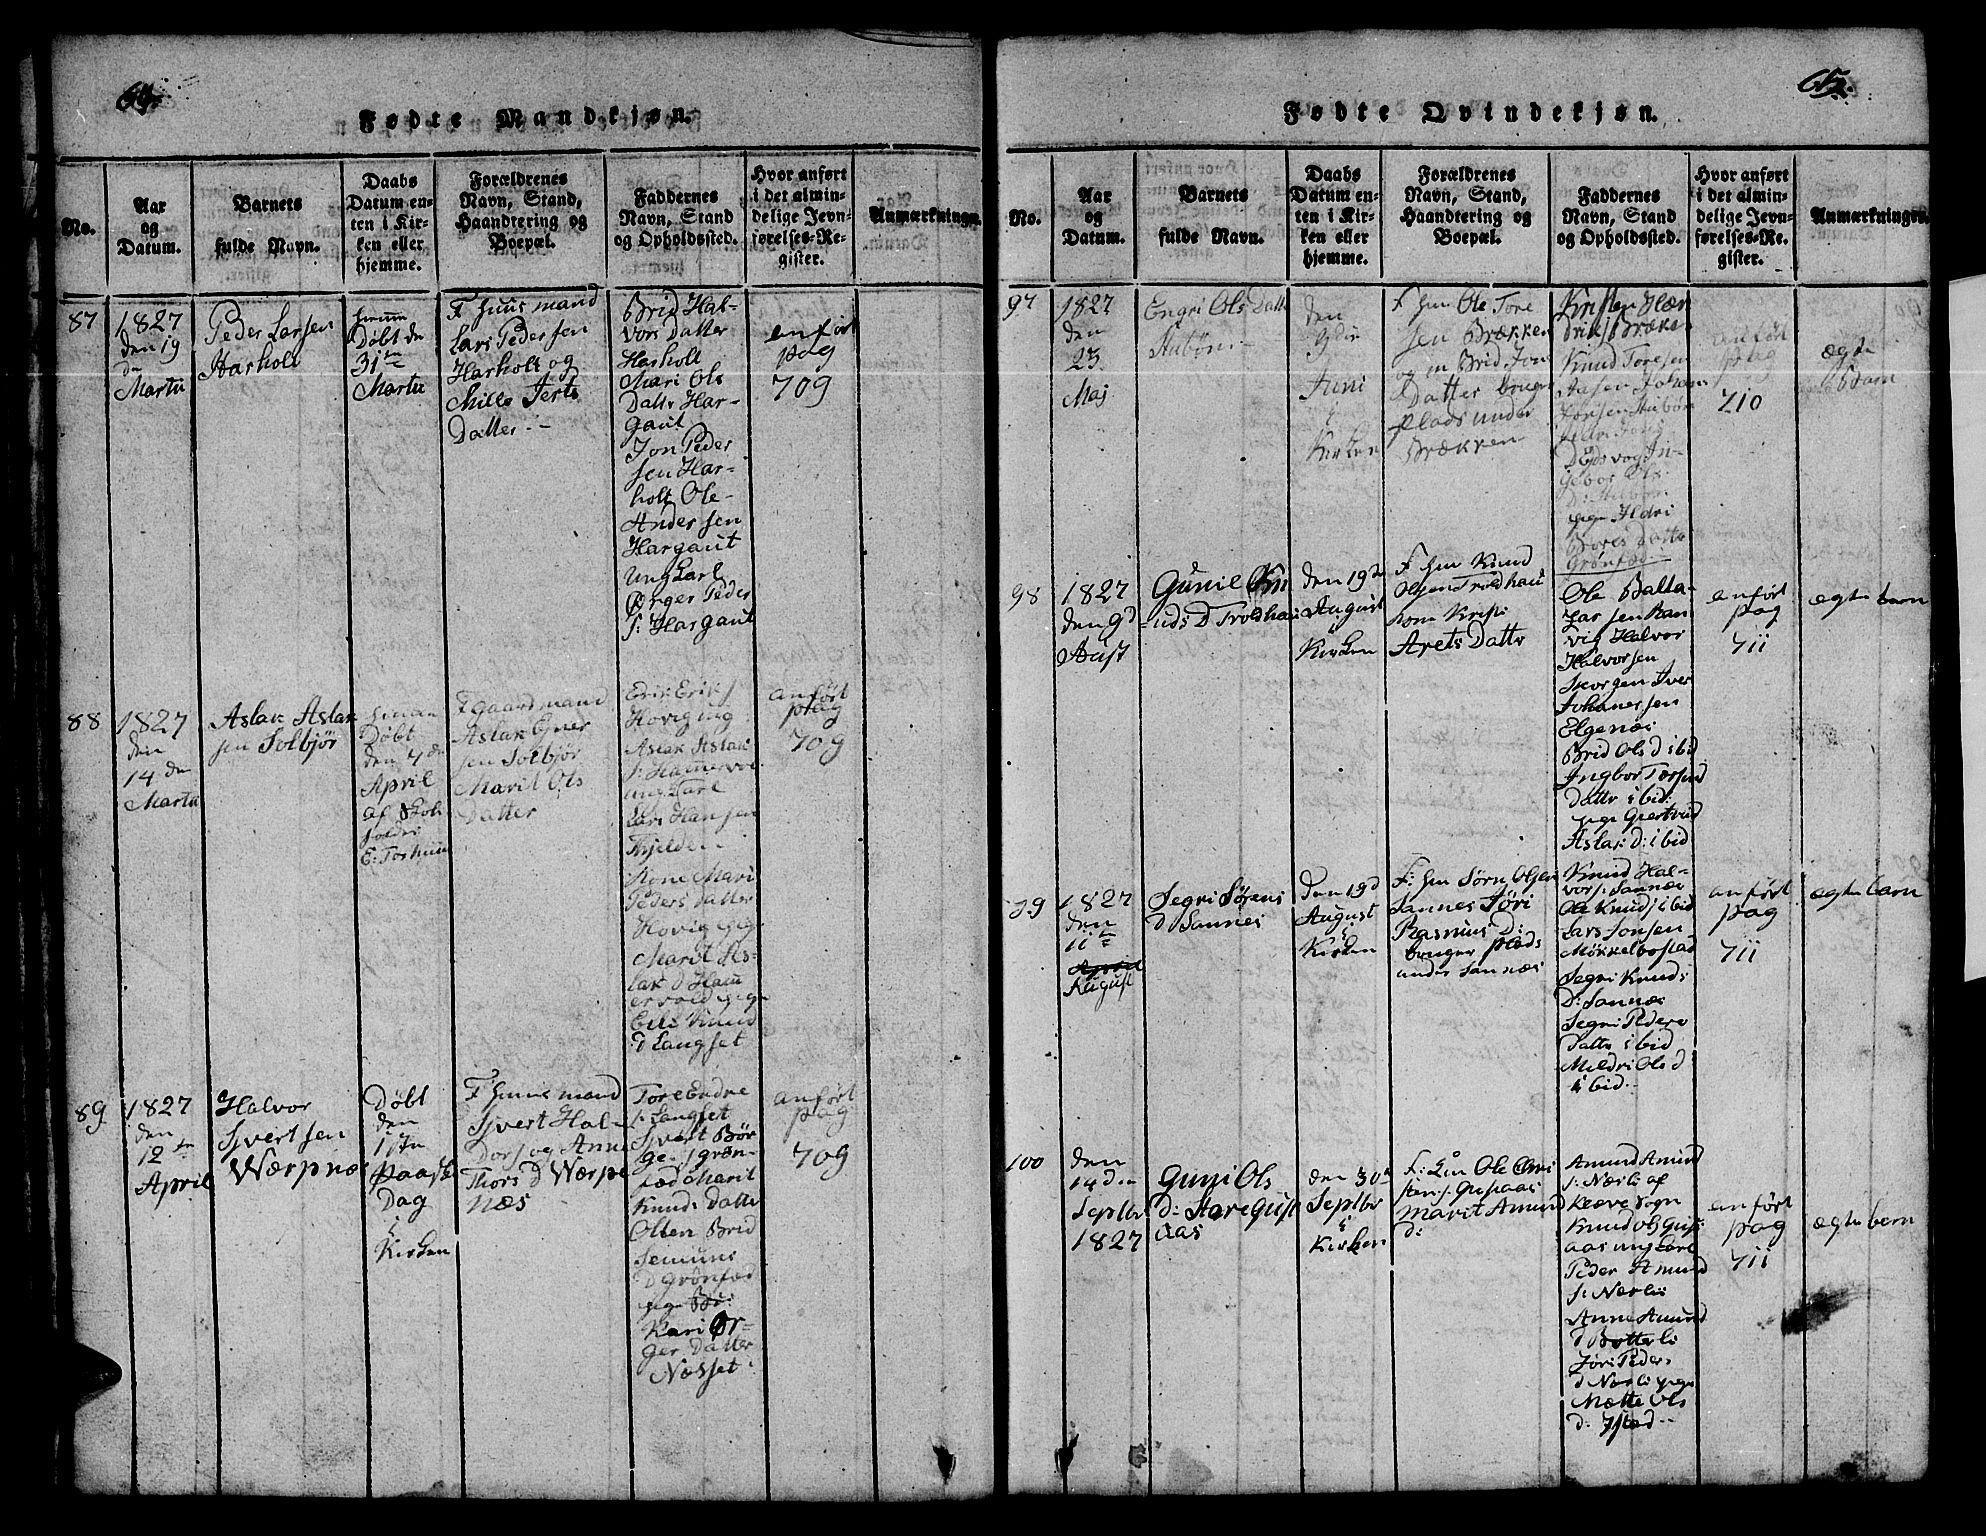 64.
Fødte Mandkjøn.
No.
Aar
og
Datum.
Barnets
fulde Navn.
Daabs
Datum en-
ten i Kir-
ken eller
hjemme.
Forældrenes
Navn, Stand,
Haandtering og
Boepæl.
Faddernes
Navn, Stand
og Opholdssted.
Hvor anført
i det almin-
delige Jevn-
førelses-Re-
gister.
Anmærkninger.
87
1827
den 19
de
Martii
Peder Larsen
Harholt
Døbt den
31te
Martii
F Huusmand
Lars Pedersen
Harholt og
Mille Jerts
Datter
Brid Hal-
vors Datter
Harholt
Mari Ols
Datter Har-
gaut
Jon Peder
sen Har-
holt Ole
Andersen
Hargaut
Ung Karl
Ørger Peder
s: Hargaut
anført
pag
709
88
1827
den
14 de
Martii
Aslak Aslak
sen Solbjør
Døbt
den 4de
April
af
E: Torhuus
F gaardmand
Aslak
sen Solbjør
Marit Ols
Datter
Erik Erik s
Hovig ung
Aslak Aslak
s: Hammervol
ung Karl
Lars Hansen
Tjelde
Kone Mari
Peders Datter
Hovig pige
Marit As-
lak d Ham
ervold pige
Knud
d Langset
anført
pag
709
89
1827
den
12te
April
Halvor
Sjvertsen
Værpnæs
Døbt
den
1ste
Paaske
Dag
i
Kirken
F Huusmand
Sjvert Hal-
vors og Anne
Thors D Værp
næs
Tore Endre
s: Langset
Sjvert Bør
ge s grøn-
fæd Marit
Knuds Datter
Olten Brid
Semuns
D Grønfæd
pige
Kari Ør-
ger Datter
Næsset
anført
pag
709
65.
Fødte Qvindekjøn.
No.
Aar
og
Datum.
Barnets
fulde Navn.
Daabs
Datum en-
ten i Kir-
ken eller
hjemme.
Forældrenes
Navn, Stand,
Haandtering og
Boepæl.
Faddernes
Navn, Stand
og Opholdssted.
Hvor anført
i det almin-
delige Jevn-
førelses-Re-
gister.
Anmærkninger.
97
1827
den
23
Maj
Engri Ols Datter
Stubøn
den
Juni
i
Kirken
F Ole Tore
sen Brækken
og Brid Jon
Datter bruger
plads under
Brækken
Kristen Hæn
drik s Bræk
Knud Toresen
Aasen Johan
Jonsen Stubøn
Eidsvog In-
gebor Ols
D: Stubøn
pige Ildri
Bores Datter
Grønfæd
anført
pag
710
ægte
Barn
98
1827
den 9d
Aust
Gunil Kn
uds D Troldhau
den 19de
August
i
Kirken
F Knud
Olsen Troldhau
kone Kristi
Arets Datter
Ole Balta-
zarsen Ran
vig Halvor
Halvorsen
Skorgen Iver
Johanessen
Elgenæs
Brid Ols d ibid
Ingbor Torsend
datter ibid:
pige Giertrud
Aslak D: ibid
anført
pag
711
ægte barn
99
1827
den
11te
April
August
Segri Sørens
d Sannes
den 19d
August
i
Kirken
F: Sørn Olsen
Sannes Jøri
Rasmus D:
bruger plads
under Sannæs
Knud Hal-
vor s: Sannæs
Ole Knuds ibid
Lars Jonsen
Møkkelbostad
Segri Knuds
D: Sannæs
Segri Peders
Datter ibid
Mildri Ols d
ibid
anført
pag
711
ægte barn
100
den
14de
Septbr
1827
Guni Ols
D: Store Gusi
aas
den 30te
Septbr
i
Kirken
F: Ole Chri
sten s: Gusiaas
Marit Amund
d:
Amund Amund
s: Næsli af
Kleve Sogn
Knud ols Gusi
aas ung Karl
Peder Amund
s: Næsli
Anne Amund
d Botterli
Jøri Peders
d Næsli pige
Mætte Ols
d: Istad
anført
pag
711
ægte barn